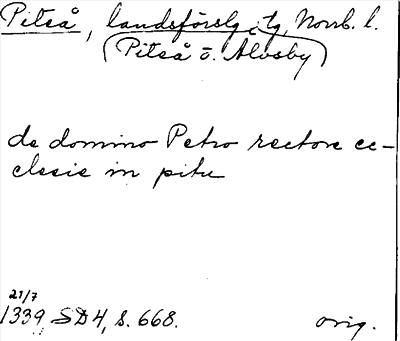 Piteå, landsförslg, tg, Norrb. l.
(Piteå ö. Älvsby)
de domino Petro rectore ec-
clesie in pitu
21/7
1339 SD4, s. 668. orig.